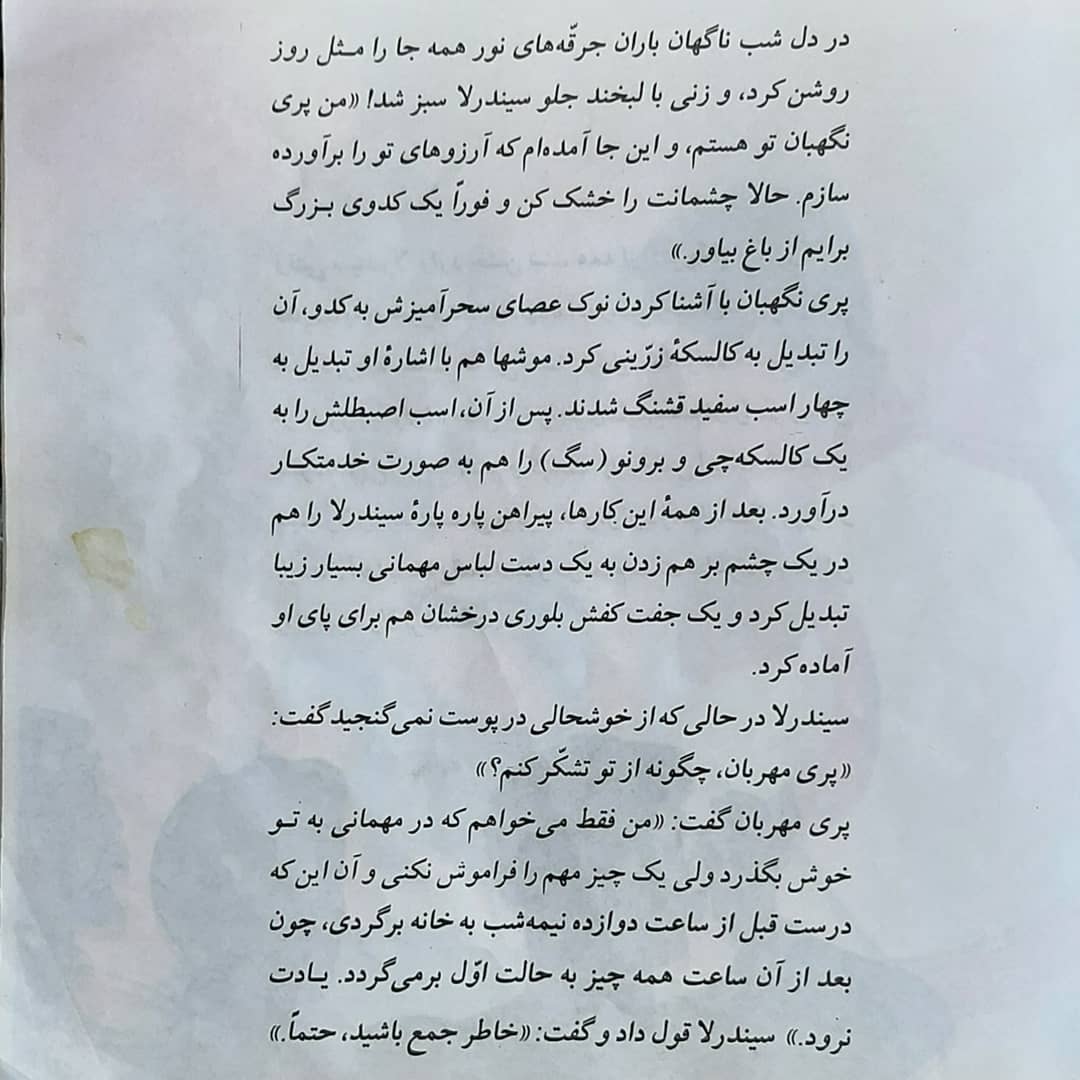 در دل شب ناگهان باران جرقّه‌های نور همه جا را مـثل روز
روشن کرد، و زنی با لبخند جلو سیندرلا سبز شد! «من پری
نگهبان تو هستم، و این جا آمده‌ام که آرزوهای تو را برآورده
سازم. حالا چشمانت را خشک کن و فوراً یک کدوی بـزرگ
برایم از باغ بیاور.»
پری نگهبان با آشنا کردن نوک عصای سحرآمیزش به کدو، آن
را تبدیل به کالسکهٔ زرّینی کرد. موشها هم با اشارهٔ او تبدیل به
چهار اسب سفید قشنگ شدند. پس از آن، اسب اصبطلش را به
یک کالسکه‌چی و برونو (سگ) را هم به صورت خدمتکـار
درآورد. بعد از همهٔ این کارها، پیراهن پاره پارهٔ سیندرلا را هم
در یک چشم بر هم زدن به یک دست لباس مهمانی بسیار زیبا
تبدیل کرد و یک جفت کفش بلوری درخشان هم برای پای او
آماده کرد.
سیندرلا در حالی که از خوشحالی در پوست نمی‌گنجید گفت:
«پری مهربان، چگونه از تو تشکّر کنم؟»
پری مهربان گفت: «من فقط می‌خواهم که در مهمانی به تـو
خوش بگذرد ولی یک چیز مهم را فراموش نکنی و آن این که
درست قبل از ساعت دوازده نیمه‌شب به خانه برگردی، چون
بعد از آن ساعت همه چیز به حالت اوّل برمی‌گردد. یـادت
نرود.» سیندرلا قول داد و گفت: «خاطر جمع باشید، حتماً.»